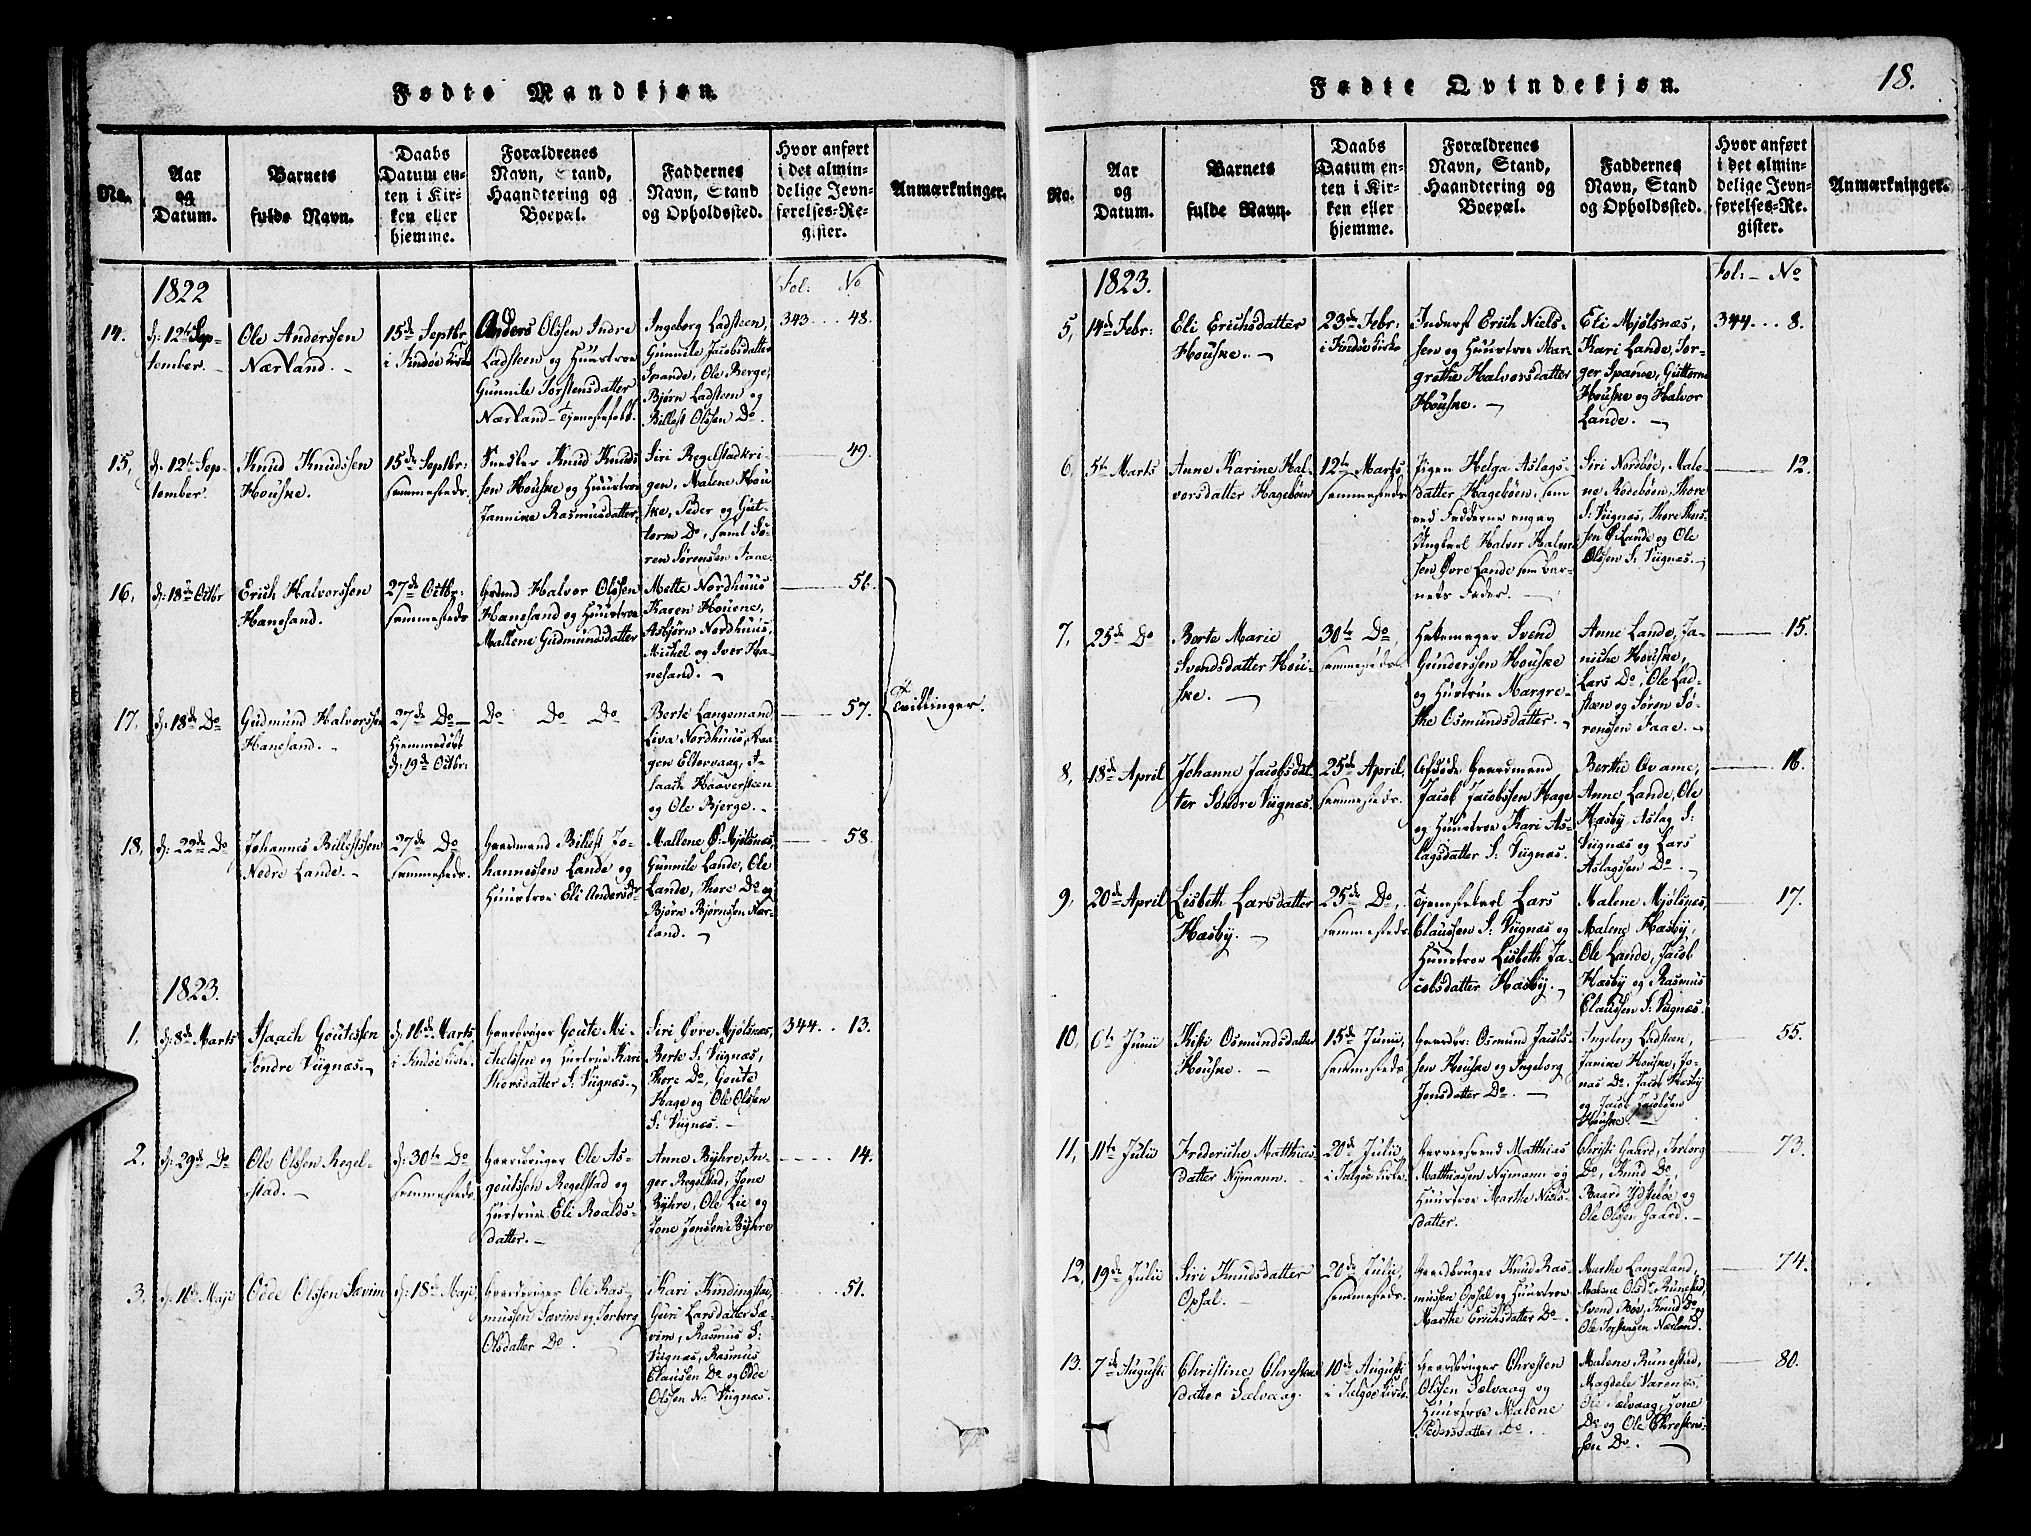 Fødte Mandkjøn.
No.
Aar
og
Datum.
Barnets
fulde Navn.
Daabs
Datum en-
ten i Kir-
ken eller
hjemme.
Forældrenes
Navn, Stand,
Haandtering og
Boepæl.
Faddernes
Navn, Stand
og Opholdssted.
Hvor anført
i det almin-
delige Jevn-
førelses-Re-
gister.
Anmærkninger.
1822
Fol: No
14.
d: 12te Sep-
tember.
Ole Anderssen
Nærland. -
15de Septbr
i Findøe Kirke
Anders Olssen Indre
Ladsteen og Huustroe
Gunnile Torstensdatter
Nærland - Tjenestefolk.
Ingeborg Ladsteen,
Gunnile Jacobsdatter
Spande, Ole Berge,
Bjørn Ladsteen og
Billest Olssen Do.
343 . . . 48.
15,
d: 12te Sep-
tember.
Knud Knudssen
Houske.
15de Septbr:
sammesteds.
Knud Knuds
sen Houske og Huustroe
Jannike Rasmusdatter,
Siri Regelstad
gen, Malene Hou
ske, Peder og Gut-
torm Do, samt Sø-
ren Sørensen Faae.
49.
16,
d: 18de Octbr
Erich Halvorssen
Hanesand.
27de Octbr:
sammesteds
Halvor Olssen
Hanesand og Huustroe
Mallene Gudmundsdatter
Mette Nordhuus
Karen Houene,
Asbjørn Nordhuus,
Michel og Iver Ha-
nesand. -
56.
17.
d: 18de Do
Gudmund Halvorssen
Hanesand. -
27de Do -
Hjemmedøbt
d: 19de Octbr:
Do Do Do
Berte Langemand
Liva Nordhuus, Aa-
gen Eltervaag, I-
saach Haaversteen
og Ole Bjerge. -
57.
Tvillinger.
18,
d: 22de Do
Johannes Billestssen
Nedre Lande. -
27de Do
sammesteds.
Gaardmand Billest Jo-
hannessen Lande og
Huustroe Eli Andersdr
Mallene Ø: Mjølsnæs,
Gunnile Lande, Ole
Lande, Thore Do og
Bjørn Bjørnsen Nær-
land. -
58.
1823.
1.
d: 8de Marts
Isaach Goutessen
Søndre Viignæs. -
d: 16de Marts
i Findøe Kirke.
Gaardbruger Goute Mi-
chelssen og Hustrue Kari
Thorsdatter S: Viignæs. -
Siri Øvre Mjølsnæs,
Berte S: Viignæs,
Thore Do, Goute
Hage og Ole Olssen
S: Viignæs. -
344. . 13.
2.
d: 29de Do
Ole Olssen Regel-
stad. -
d: 30te Do
sammesteds.
Gaardbruger Ole As-
goutssen Regelstad og
Hustrue Eli Roalds-
datter. -
Anne Byhre, In-
ger Regelstad, Jone
Byhre, Ole Lie og
Jone Jonsen Byhre
14.
3.
d: 16de Maji
Odde Olssen Sævim
d: 18de Maji
Gaardbruger Ole Ras-
mussen Sævim og Torborg
Olsdatter Do.
Kari Kindingstad,
Guri Larsdatter Sæ-
vim, Rasmus S:
Viignæs, Rasmus
Clausen Do og Odde
Olssen N: Viignæs.
51.
Fødte Qvindekjøn.
18.
No.
Aar
og
Datum.
Barnets
fulde Navn.
Daabs
Datum en-
ten i Kir-
ken eller
hjemme.
Forældrenes
Navn, Stand,
Haandtering og
Boepæl.
Faddernes
Navn, Stand
og Opholdssted.
Hvor anført
i det almin-
delige Jevn-
førelses-Re-
gister.
Anmærkninger.
1823.
Fol: - No
5,
14de Febr:
Eli Erichsdatter
Houske. -
23de Febr:
i Findøe Kirke
Inderst Erich Niels-
sen og Huustroe Mar-
grethe Halvorsdatter
Houske. -
Eli Mjølsnæs,
Kari Lande, Tor-
ger Spanne, Guttorm
Houske og Halvor
Lande. -
344 . . . 8.
6.
5te Marts
Anne Karine Hal-
vorsdatter Hagebøen
12te Marts
sammesteds
Pigen Helga Aslags-
datter Hagebøen, som
ved Fadderne angav
Ungkarl Halvor Halvor
sen Øvre Lande som Bar-
nets Fader. -
Siri Nordbøe, Male-
ne Rødebøen, Thore
S: Viignæs, Thore Thors-
sen Ø: Lande og Ole
Olssen S: Viignæs. -
12.
7,
25de Do
Berte Marie
Svendsdatter Hou-
ske. -
30te Do
sammesteds.
Svend
Gunderssen Houske
og Hustrue Margre-
the Osmundsdatter. -
Anne Lande, Ja-
niche Houske,
Lars Do, Ole Lad-
steen og Søren Sø-
renssen Faae. -
15.
8,
18de April
Johanne Jacobsdat-
ter Søndre Viignæs.
25de April,
sammesteds.
Gaardmand
Jacob Jacobssen Hage
og Huustroe Kari As-
lagsdatter S: Viignæs.
Berthe Qvame,
Anne Lande, Ole
Hæsby Aslag S:
Viignæs og Lars
Aslagssen Do. -
16.
9,
20de April
Lisbeth Larsdatter
Hæsby. -
25de Do,
sammesteds.
Tjenestekarl Lars
Claussen S: Viignæs og
Huustroe Lisbeth Ja-
cobsdatter Hæsby. -
Malene Mjølsnæs,
Malene Hæsby,
Ole Lande, Jacob
Hæsby og Rasmus
Claussen S: Viignæs.
17.
10,
6te Junii
Kisti Osmundsdatter
Houske. -
15de Junii,
sammesteds.
Osmund Jacobs-
sen Houske og Ingeborg
Jonsdatter Do. -
Ingeborg Ladsteen,
Janike Houske, Jo-
nas Do, Jacob Hæsby
og Jacob Jacobssen
Houske. -
55.
11,
11te Julii
Frederiche Matthias-
datter Nymann. -
20de Julii,
i Talgøe Kirke.
Matthias
Matthiassen Nymann og
Huustroe Marthe Niels-
datter.
Christi Gaard, Torborg
Do, Knud Do,
Baard Ydstebøe og
Ole Olssen Gaard. -
73.
12,
19de Julii
Siri Knudsdatter
Opsal. -
20de Julii,
sammesteds.
Gaardbruger Knud Ras-
mussen Opsal og Huustroe
Marthe Erichsdatter Do. -
Marthe Langeland,
Malene Olsdr Runestad,
Svend Bøe, Knud Do og
Ole Torstensen Nærland.
74.
13.
7de Augusti
Christine Chrestens
datter Sælvaag.
10de Augusti
i Talgøe Kirke.
Gaardbruger Chresten
Olssen Sælvaag og
Huustroe Malene
Pedersdatter Do.
Malene Runestad,
Magdele Varenæs,
Ole Sælvaag, Jone
Do og Ole Chrestens-
sen Do. -
80.